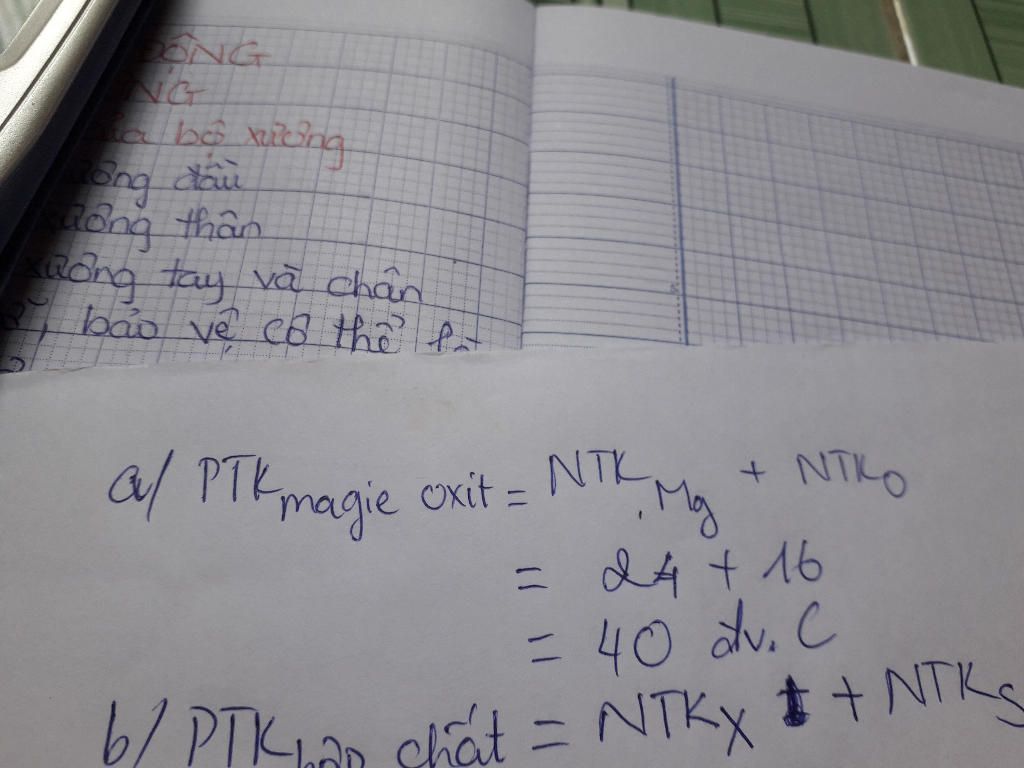 bộ xương
đầu
thân
xương tay và chân
bảo vệ cơ thể
a/ PTK magie oxit = NTK Mg + NTK O
= 24 + 16
= 40 đv. C
b/ PTK hợp chất = NTK X + NTK S